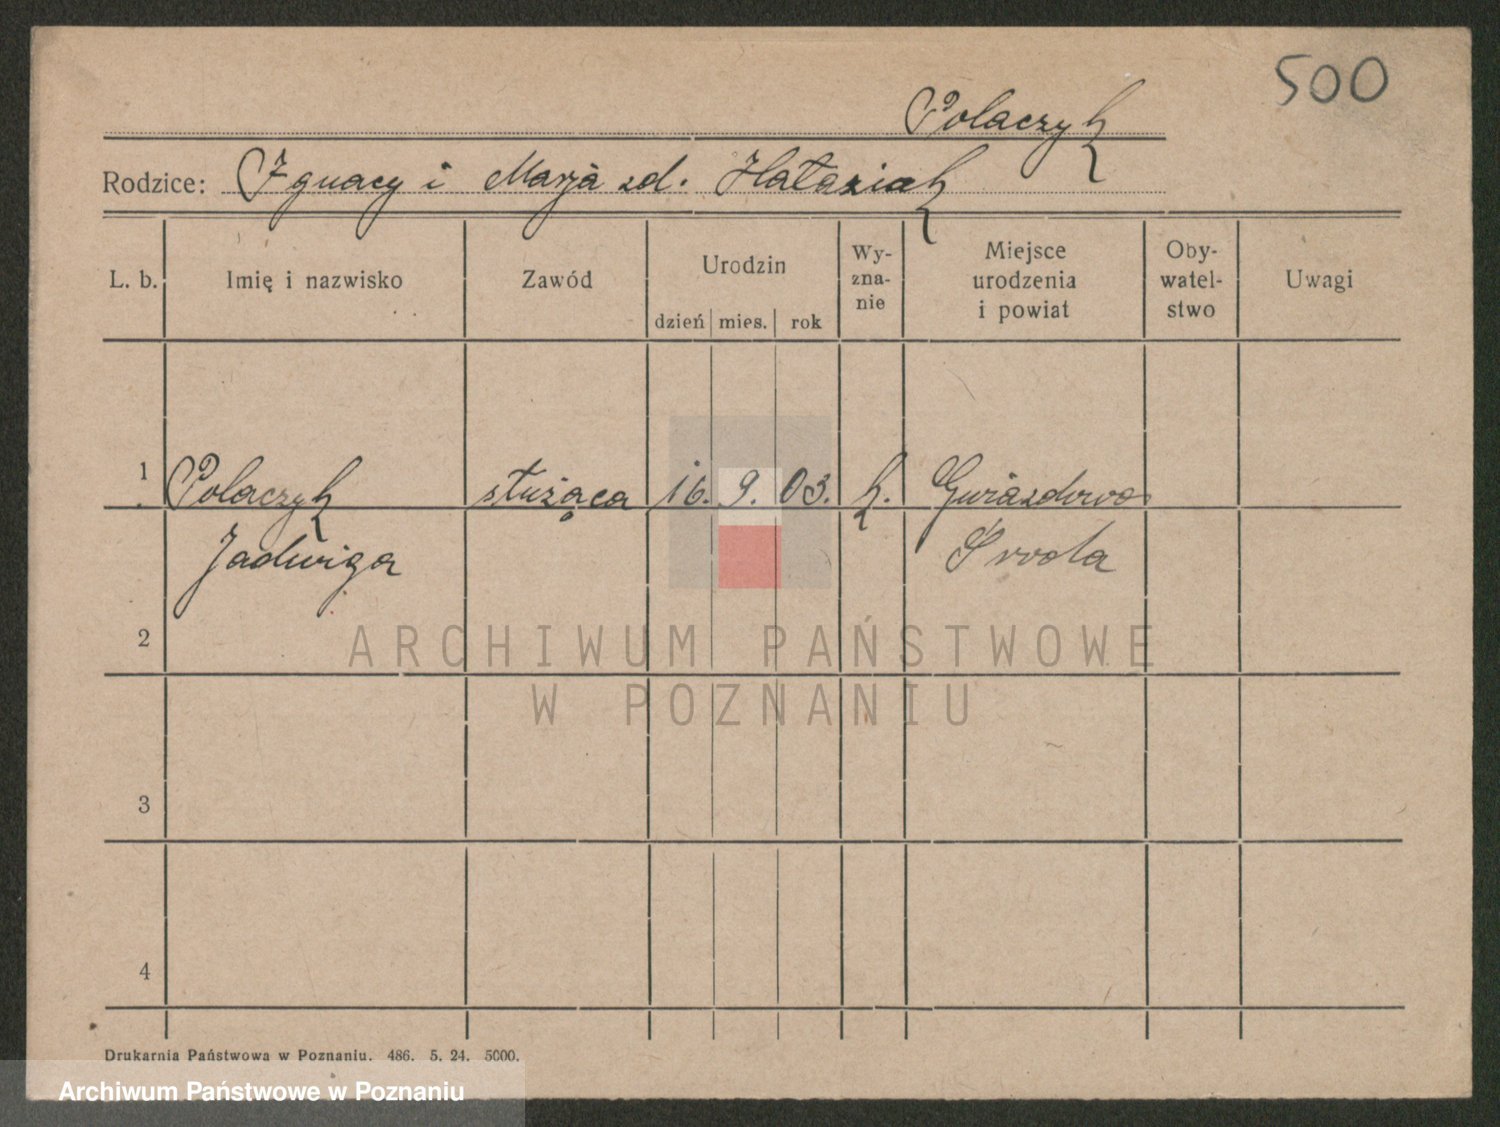 500
Polaczyk
Rodzice: Ignacy i Marja zd. Hałasiak
L. b.
Imię i nazwisko
Zawód
Urodzin
dzień
mies.
rok
Wy-
zna-
nie
Miejsce
urodzenia
i powiat
Oby-
watel-
stwo
Uwagi
1
Polaczyk
Jadwiga
służąca
16.
9.
03.
k.
Gwiazdowo
Środa
2
3
4
ARCHIWUM PAŃSTWOWE
W POZNANIU
Drukarnia Państwowa w Poznaniu. 486. 5. 24. 5000.
Archiwum Państwowe w Poznaniu